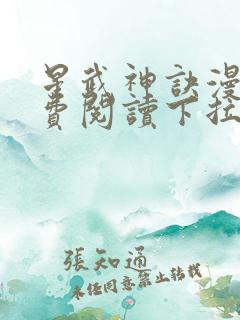 星武神訣漫
費閱讀下拉
張知通
未經同意禁止轉載